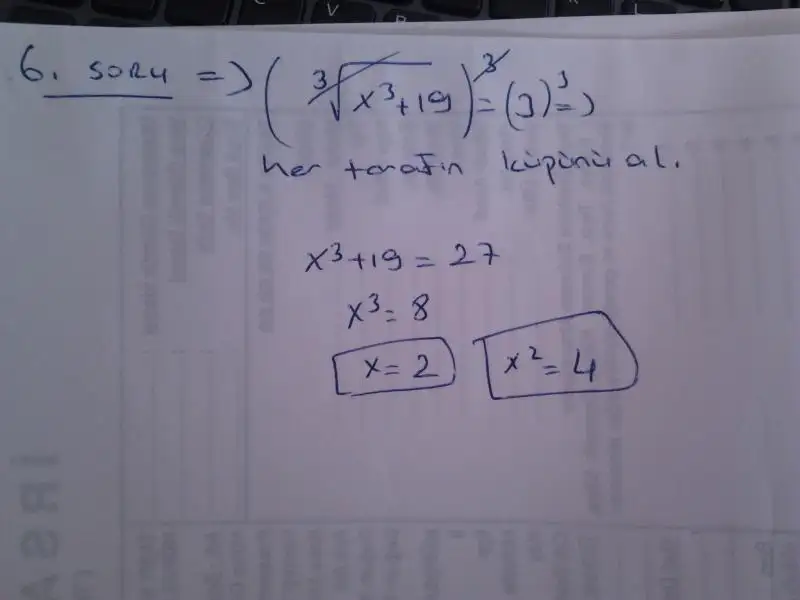 6. soru => (∛x³+19)³ = (3)³ =>
her tarafın küpünü al.
x³+19 = 27
x³ = 8
x = 2 x² = 4